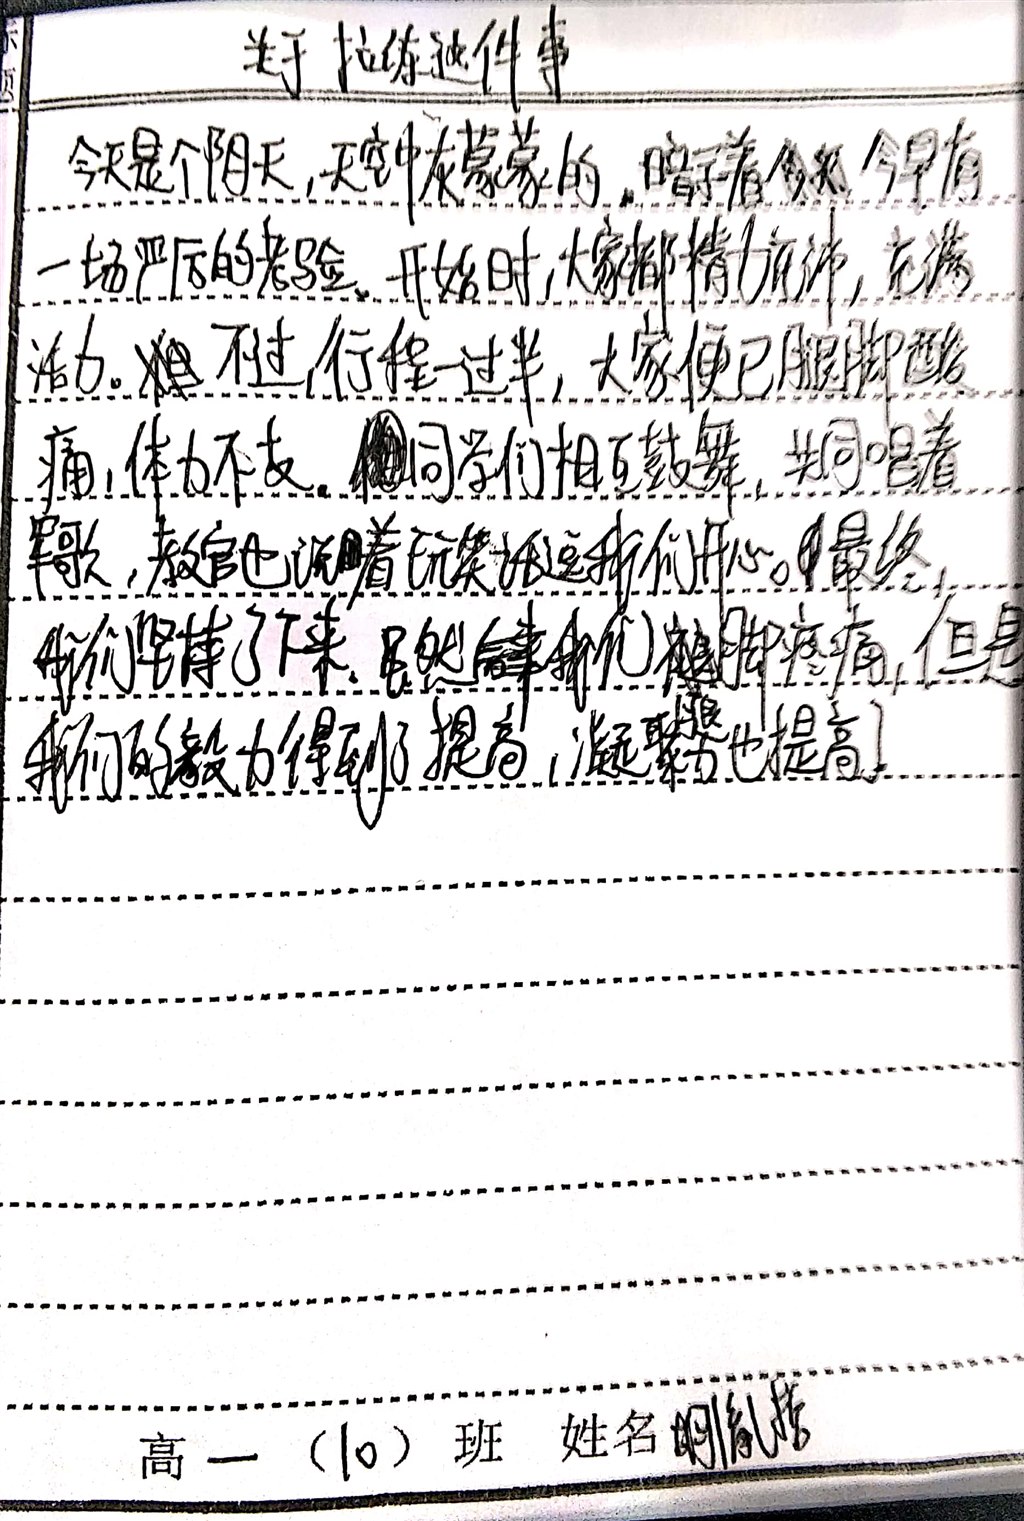 关于拉练这件事
今天是个阴天，天空中灰蒙蒙的，暗示着今早有
一场严厉的考验。开始时，大家都精力充沛，充满
活力。不过，行程一过半，大家便已腿脚酸
痛，体力不支。同学们相互鼓舞，共同唱着
军歌，教官也说着玩笑话逗我们开心。最终，
我们坚持了下来。虽然我们腿脚疼痛，但是
我们的毅力得到了提高，凝聚力也提高了
高一（10）班 姓名